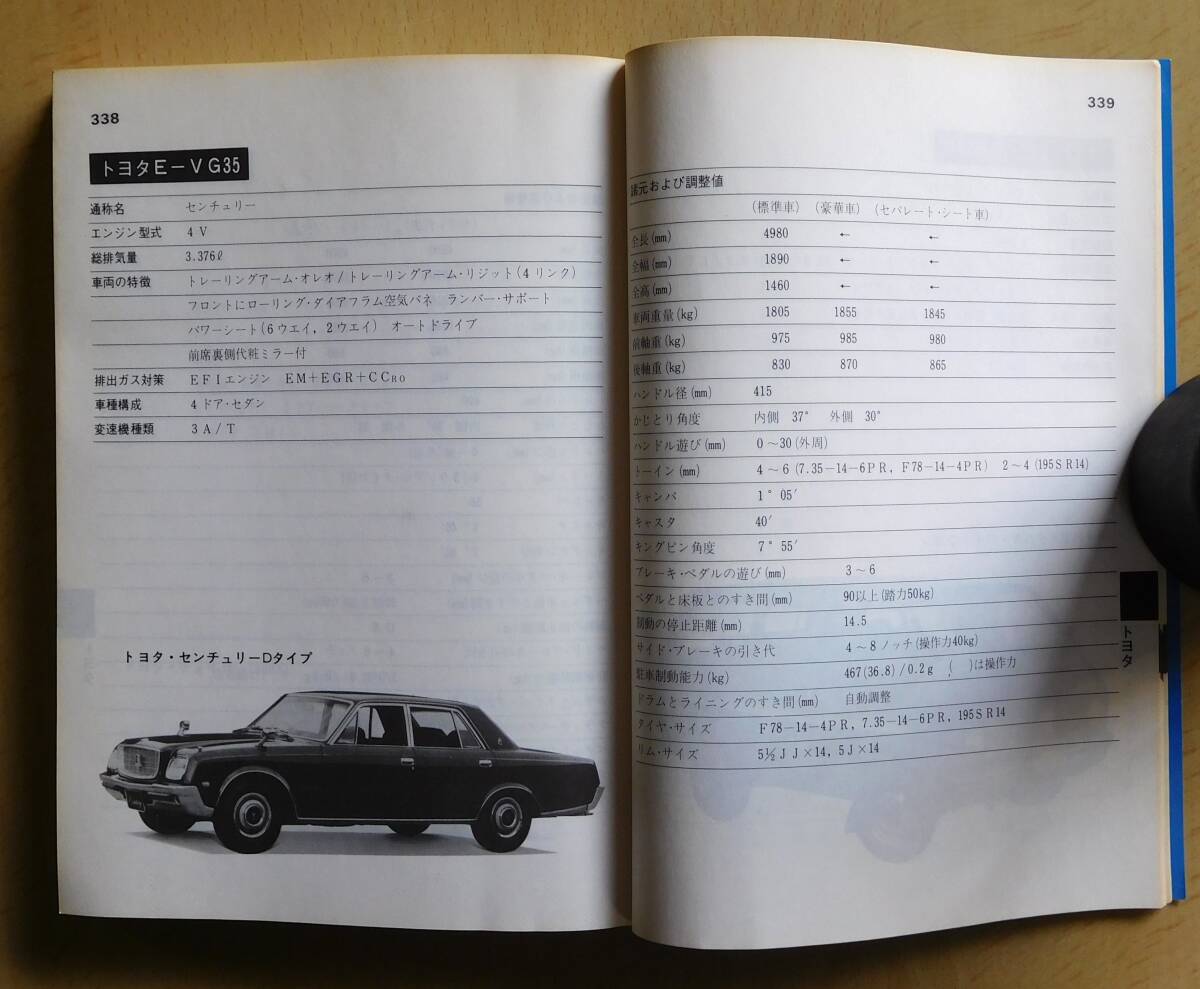 338
トヨタE－VG35
通称名 センチュリー
エンジン型式 4V
総排気量 3.376ℓ
車両の特徴 トレーリングアーム・オレオ/トレーリングアーム・リジット(4リンク)
フロントにローリング・ダイアフラム空気バネ ランバー・サポート
パワーシート(6ウエイ, 2ウエイ) オートドライブ
前席裏側代粧ミラー付
排出ガス対策 EFIエンジン EM＋EGR＋CCRO
車種構成 4ドア・セダン
変速機種類 3A/T
トヨタ・センチュリーDタイプ
339
諸元および調整値
(標準車) (豪華車) (セパレート・シート車)
全長(mm) 4980 ← ←
全幅(mm) 1890 ← ←
全高(mm) 1460 ← ←
車両重量(kg) 1805 1855 1845
前軸重(kg) 975 985 980
後軸重(kg) 830 870 865
ハンドル径(mm) 415
かじとり角度 内側 37° 外側 30°
ハンドル遊び(mm) 0～30(外周)
トーイン(mm) 4～6(7.35－14－6PR, F78－14－4PR) 2～4(195SR14)
キャンバ 1°05′
キャスタ 40′
キングピン角度 7°55′
ブレーキ・ペダルの遊び(mm) 3～6
ペダルと床板とのすき間(mm) 90以上(踏力50kg)
制動の停止距離(mm) 14.5
サイド・ブレーキの引き代 4～8ノッチ(操作力40kg)
駐車制動能力(kg) 467(36.8)/0.2g ( )は操作力
ドラムとライニングのすき間(mm) 自動調整
タイヤ・サイズ F78－14－4PR, 7.35－14－6PR, 195SR14
リム・サイズ 5½JJ×14, 5J×14
トヨタ